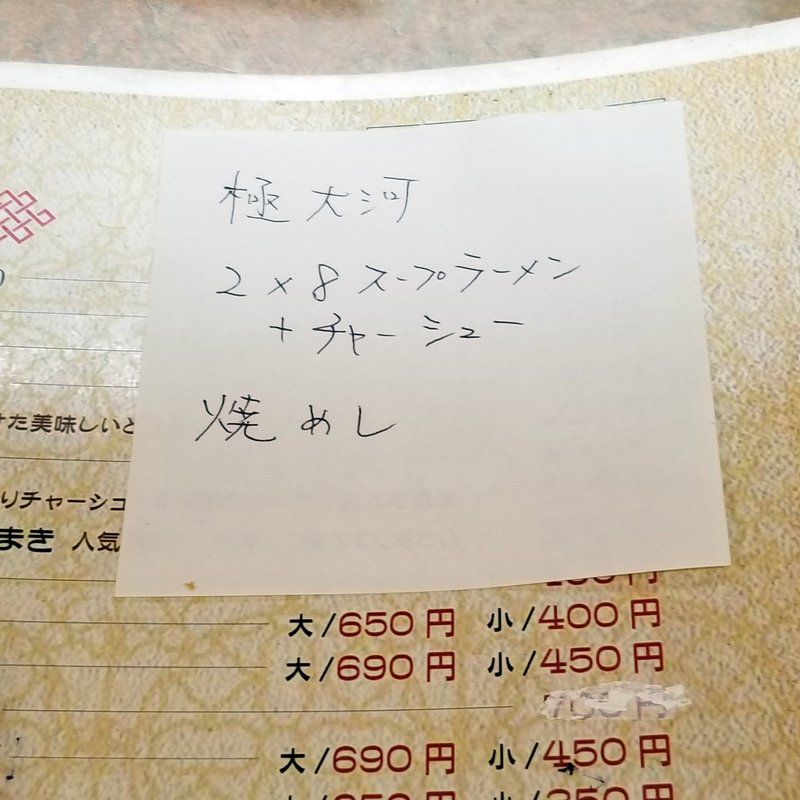 極 大河
2×8 スープラーメン
+ チャーシュー
焼めし
た美味しいと
りチャーシュ
まき 人気
大/650円 小/400円
大/690円 小/450円
大/690円 小/450円